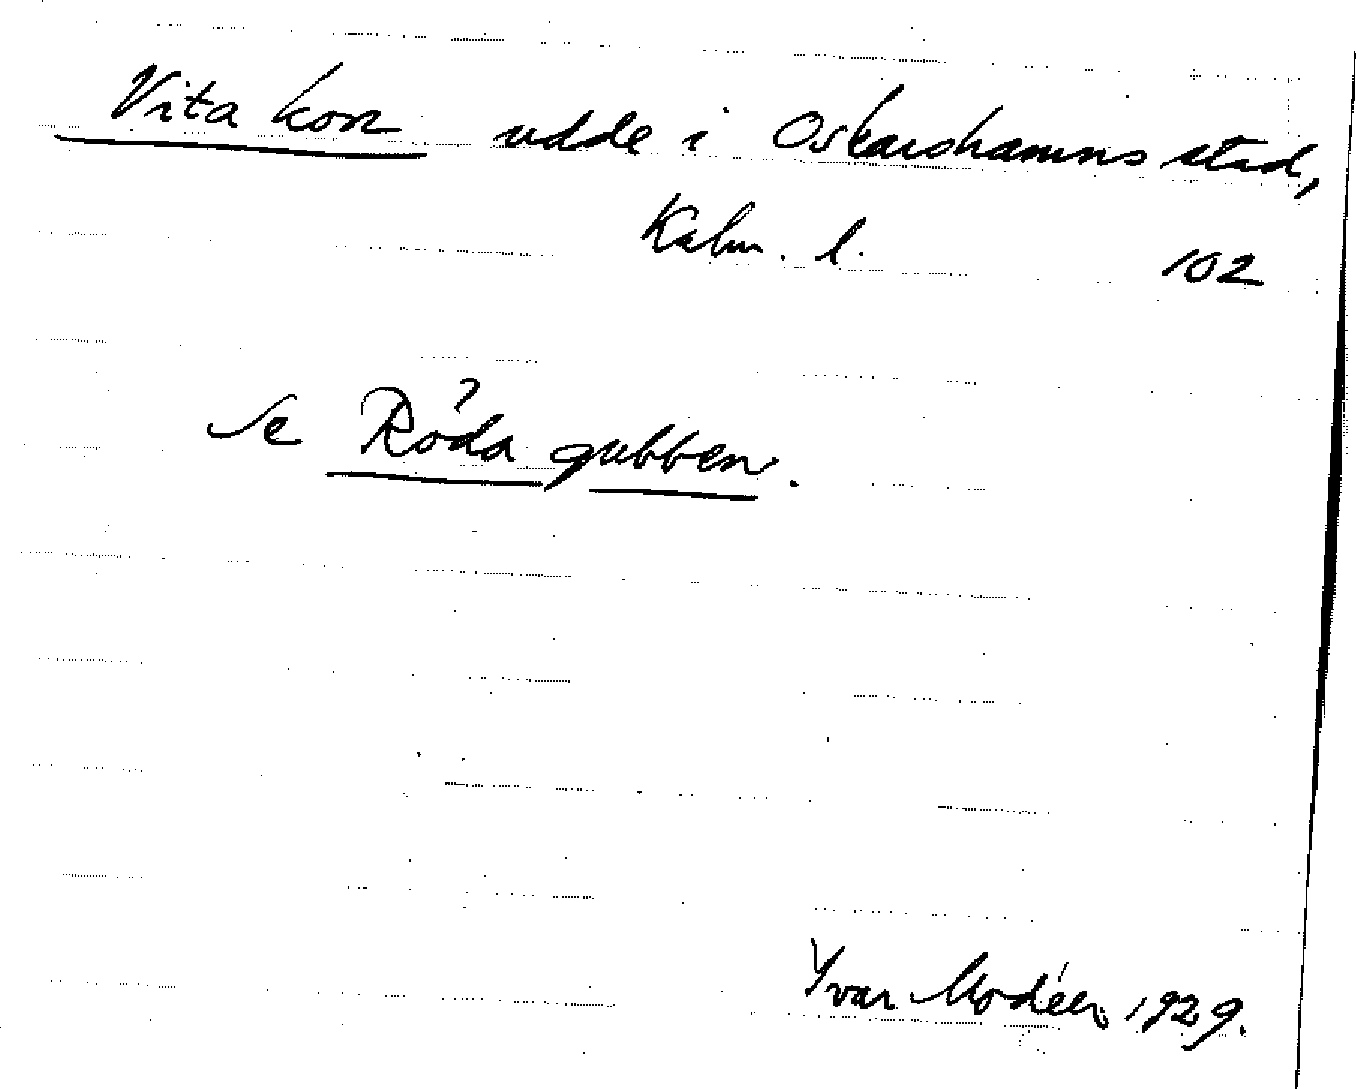 Vita kon udde i Oskarshamns stad,
Kalm. l. 102
Se Röda gubben.
Yvar Modéer 1929.